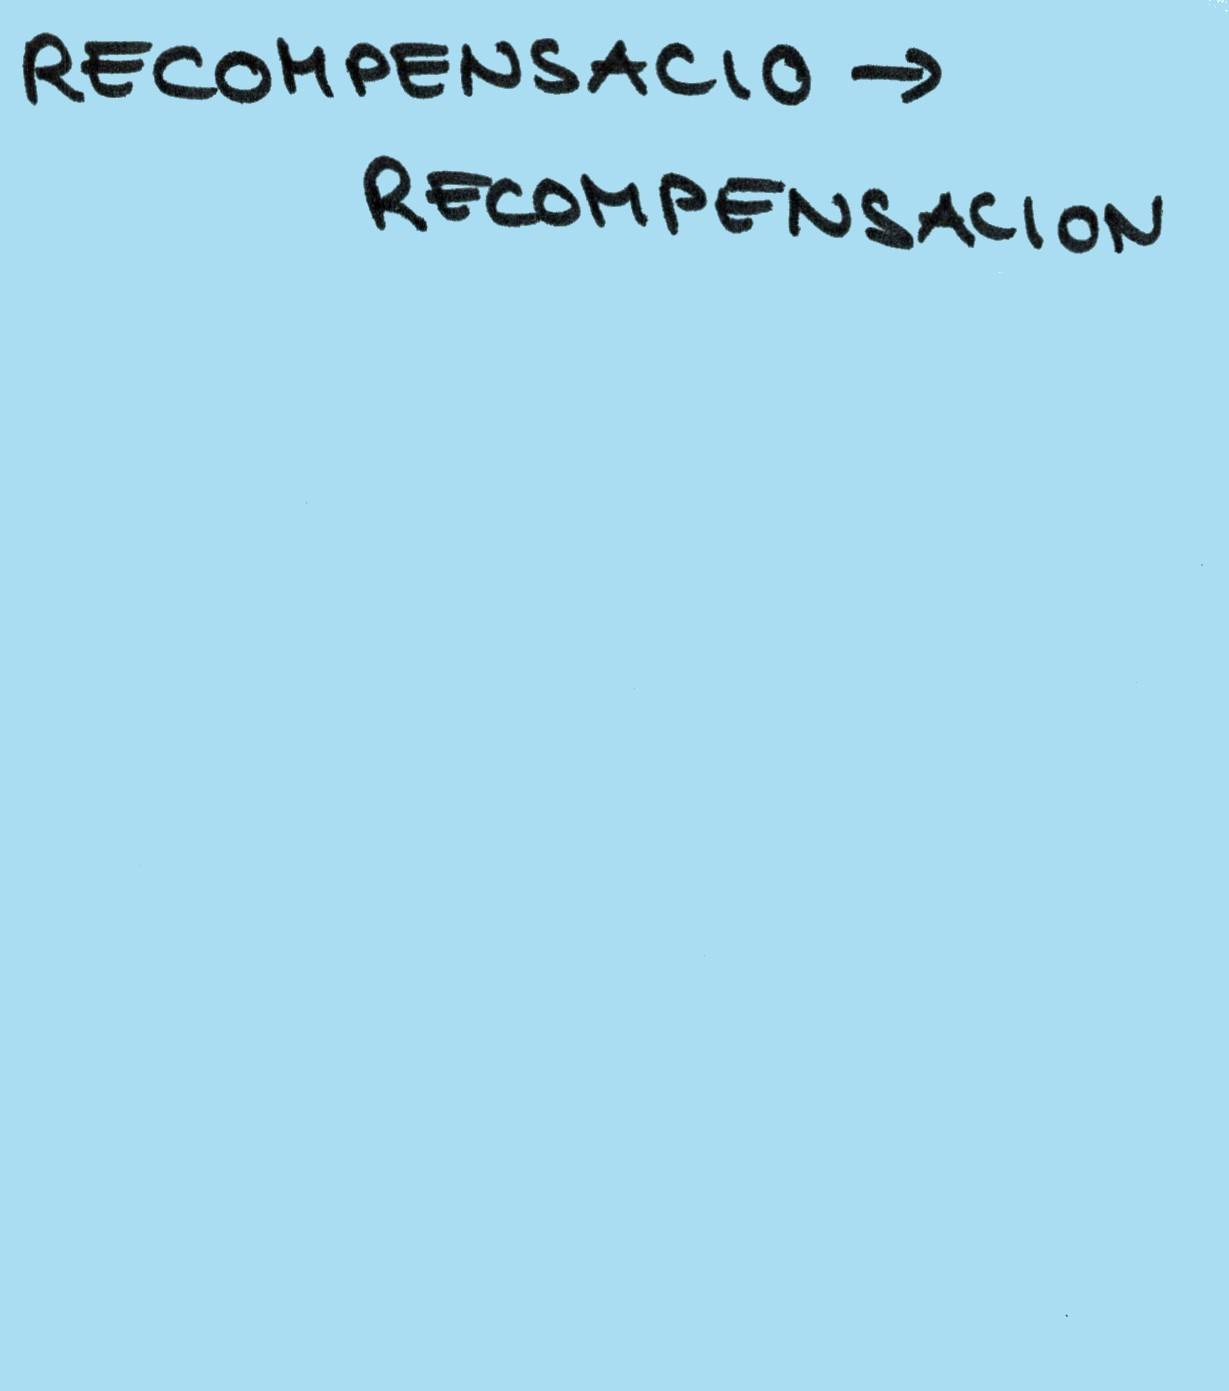 RECOMPENSACIO →
RECOMPENSACION